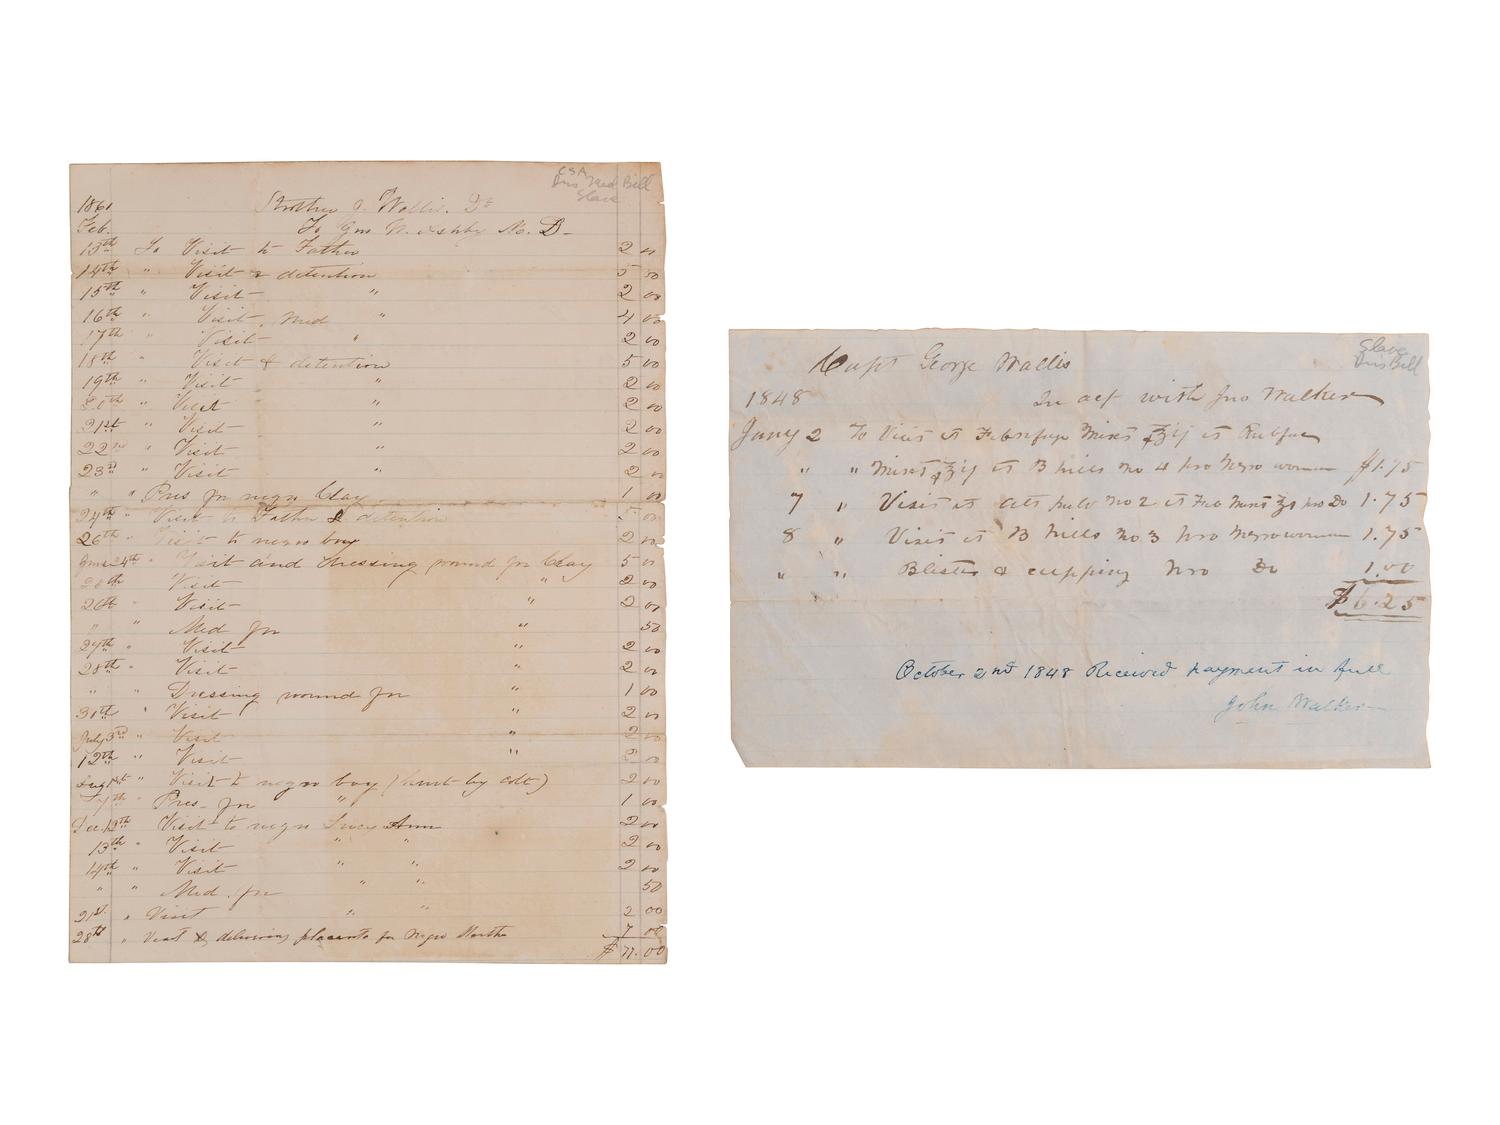 CSA
Med Bill
Slave
1861 Strother J. Wallis. Dr
Feb. To Geo W. Ashby M. D.
13th To Visit to Father 2 00
14th " Visit & detention 5 50
15th " Visit " 2 00
16th " Visit, Med " 4 00
17th " Visit " 2 00
18th " Visit & detention 5 00
19th " Visit " 2 00
20th " Visit " 2 00
21st " Visit " 2 00
22nd " Visit " 2 00
23d " Visit " 2 00
" " Pres for negro Clay 1 00
24th " Visit to Father & detention 5 00
26th " Visit to negro boy 2 00
June 24th " Visit and dressing wound for Clay 5 00
Visit " 2 00
26th " Visit " 2 00
" " Med for " 50
27th " Visit " 2 00
28th " Visit " 2 00
" " Dressing wound for " 1 00
31th " Visit " 2 00
July 3rd " Visit " 2 00
12th " Visit " 2 00
Aug 1st " Visit to negro boy (hurt by colt) 2 00
7th " Pres for " 1 00
Dec. 12th Visit to negro Lucy Ann 2 00
13th " Visit " " 2 00
14th " Visit " " 2 00
" " Med. for " " 50
21st. " Visit " " 2 00
28th " Visit & delivering placenta for Negro Martha 7 00
$ 77.00
Slave
Bill
Capt George Wallis
1848 In act with Jno Walker
Jany 2 To Visit
" " B Mills No 4 pro Negro woman $1.75
7 " Visit at No 2 pro Do 1.75
8 " Visit at B Mills No 3 pro Negro woman 1.75
" " Blister & cupping pro Do 1.00
$6.25
October 2nd 1848 Received payment in full
John Walker